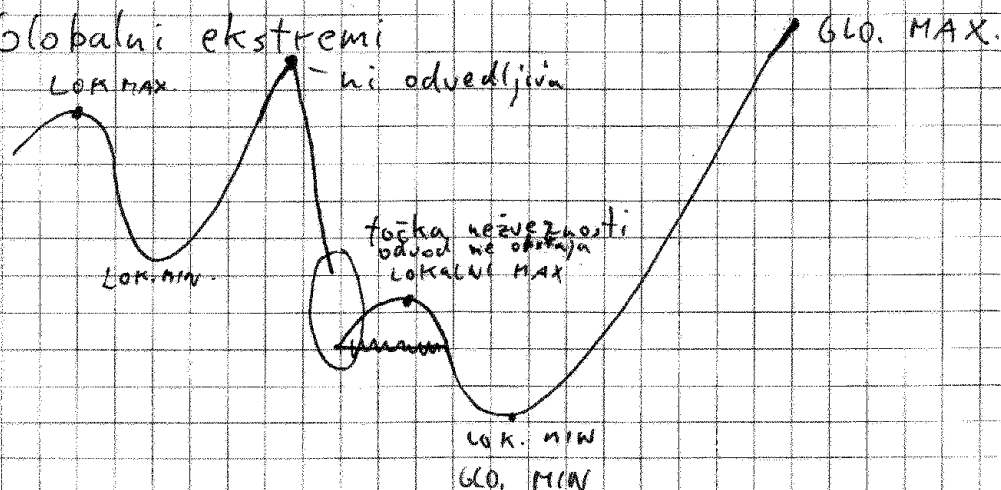 Globalni ekstremi
GLO. MAX.
LOK MAX.
- ni odvedljiva
točka nezveznosti
odvod ne obstaja
LOKALNI MAX
LOK. MIN.
LOK. MIN
GLO. MIN